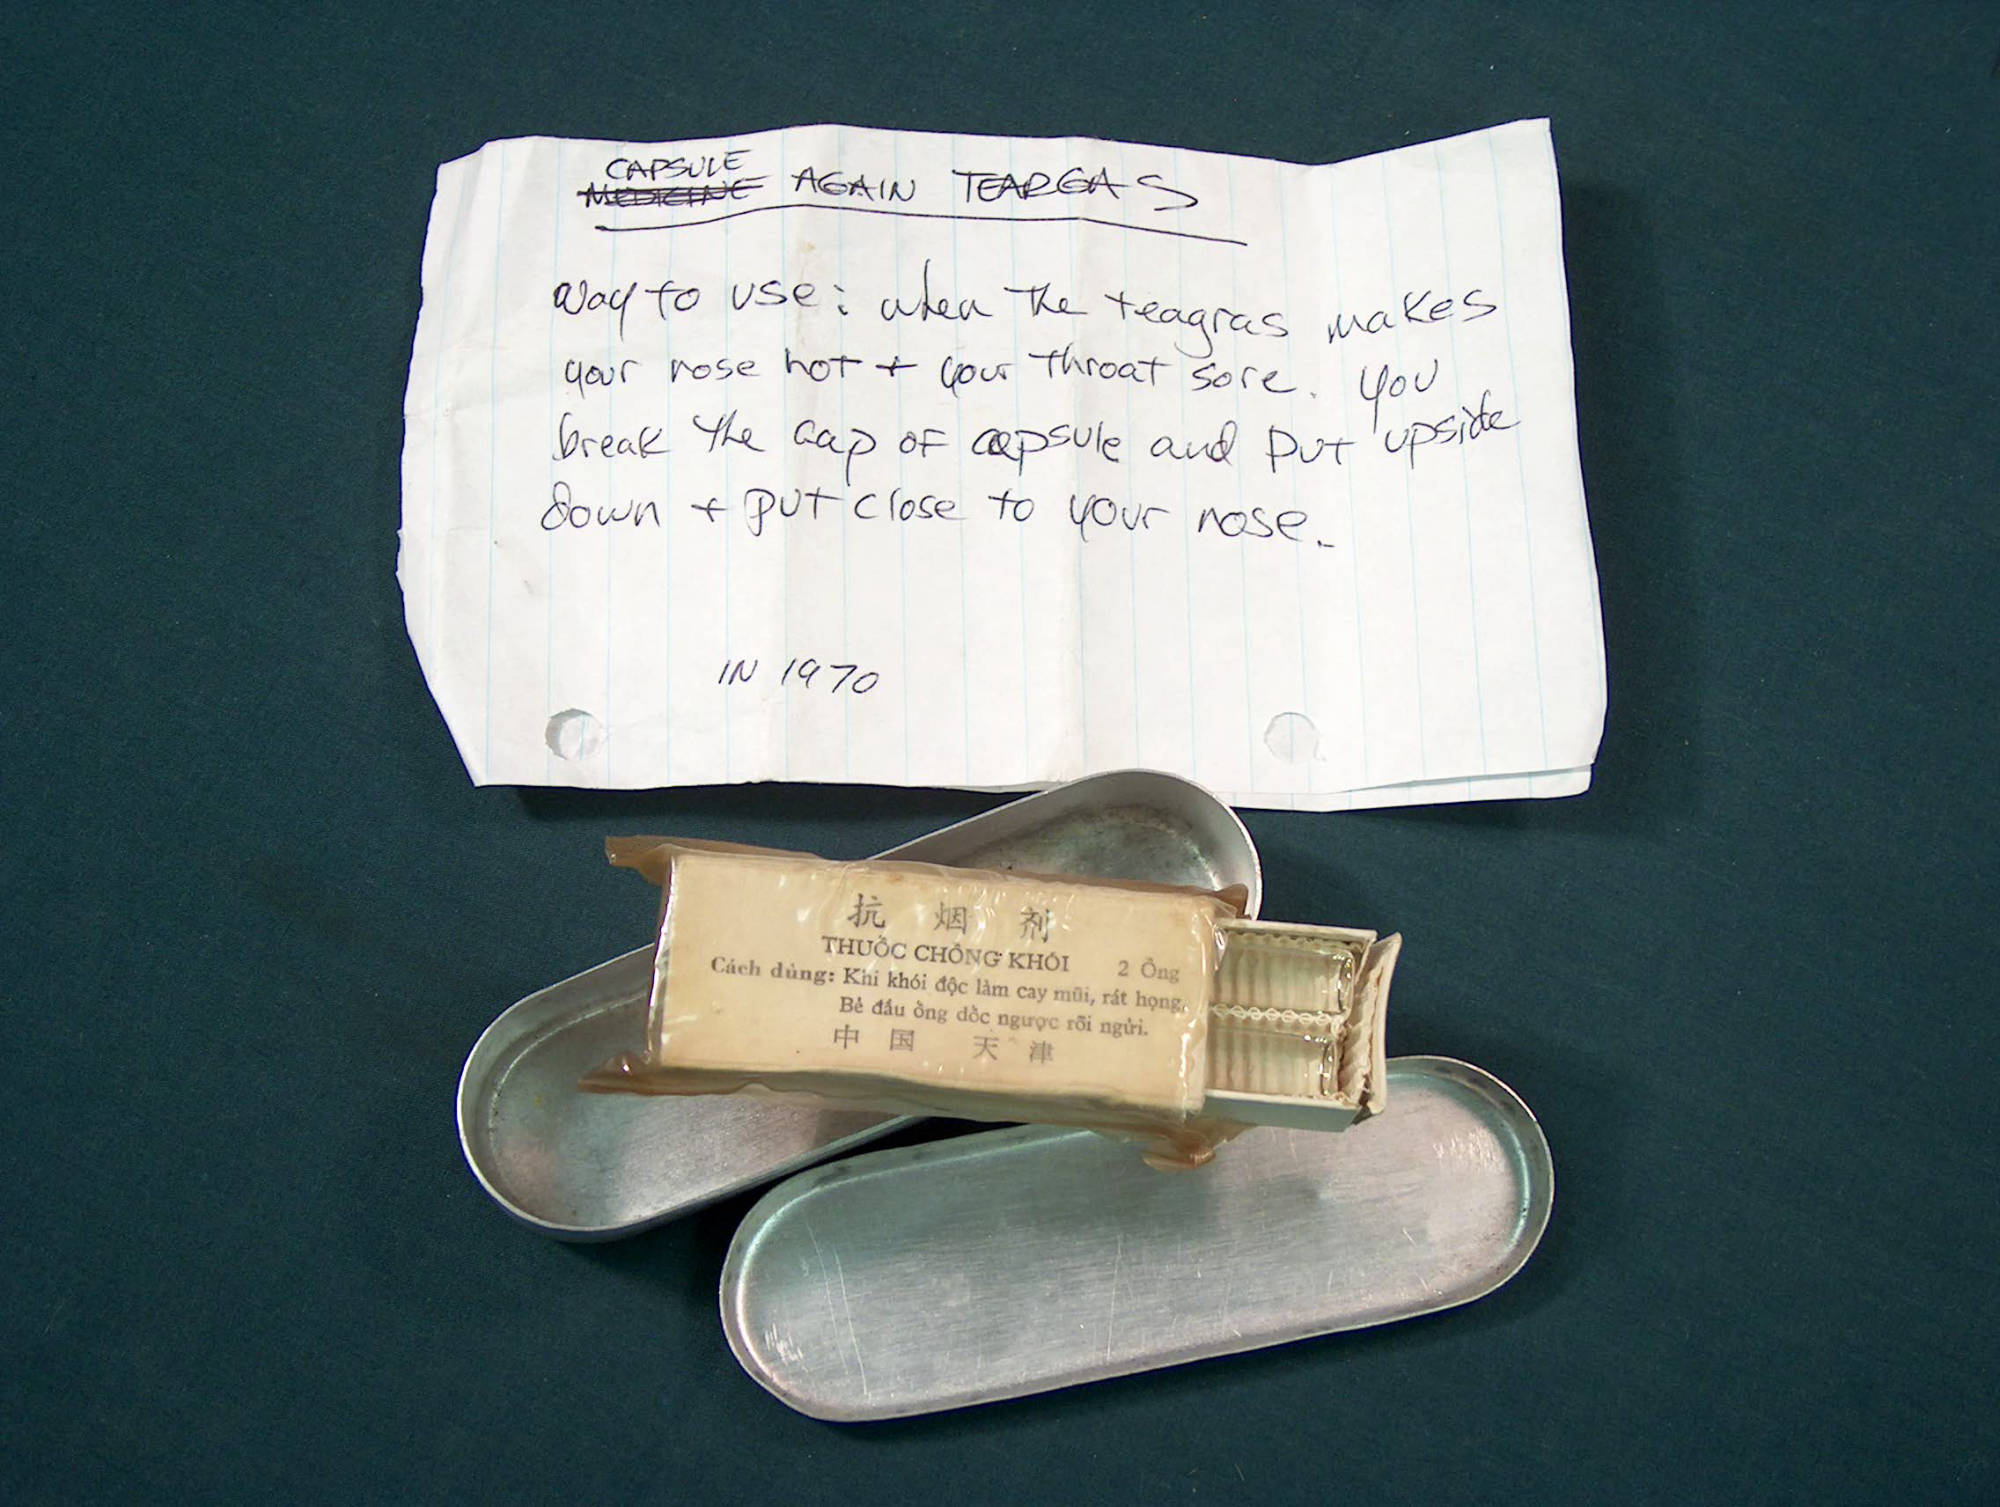 CAPSULE
MEDICINE AGAIN TEARGAS
way to use: when the teagras makes
your nose hot + your throat sore. you
break the cap of capsule and put upside
down + put close to your nose.
IN 1970
抗 烟 剂
THUỐC CHỐNG KHÓI 2 Ống
Cách dùng: Khi khói độc làm cay mũi, rát họng,
Bẻ đầu ống dốc ngược rồi ngửi.
中 国 天 津